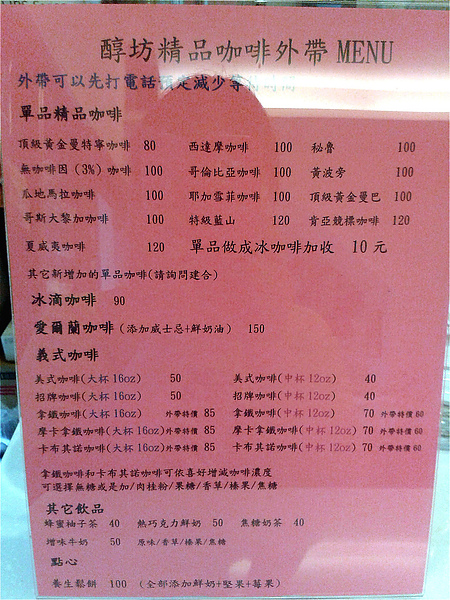 醇坊精品咖啡外帶 MENU
外帶可以先打電話預定減少等待時間
單品精品咖啡
頂級黃金曼特寧咖啡 80 西達摩咖啡 100 秘魯 100
無咖啡因 (3%) 咖啡 100 哥倫比亞咖啡 100 黃波旁 100
瓜地馬拉咖啡 100 耶加雪菲咖啡 100 頂級黃金曼巴 100
哥斯大黎加咖啡 100 特級藍山 120 肯亞競標咖啡 120
夏威夷咖啡 120 單品做成冰咖啡加收 10 元
其它新增加的單品咖啡(請詢問建合)
冰滴咖啡 90
愛爾蘭咖啡 (添加威士忌+鮮奶油) 150
義式咖啡
美式咖啡(大杯 16oz) 50 美式咖啡(中杯 12oz) 40
招牌咖啡(大杯 16oz) 50 招牌咖啡(中杯 12oz) 40
拿鐵咖啡(大杯 16oz) 外帶特價 85 拿鐵咖啡(中杯 12oz) 70 外帶特價 60
摩卡拿鐵咖啡(大杯 16oz)外帶特價 85 摩卡拿鐵咖啡(中杯 12oz) 70 外帶特價 60
卡布其諾咖啡(大杯 16oz)外帶特價 85 卡布其諾咖啡(中杯 12oz) 70 外帶特價 60
拿鐵咖啡和卡布其諾咖啡可依喜好增減咖啡濃度
可選擇無糖或是加/肉桂粉/果糖/香草/榛果/焦糖
其它飲品
蜂蜜柚子茶 40 熱巧克力鮮奶 50 焦糖奶茶 40
增味牛奶 50 原味/香草/榛果/焦糖
點心
養生鬆餅 100 (全部添加鮮奶+堅果+莓果)